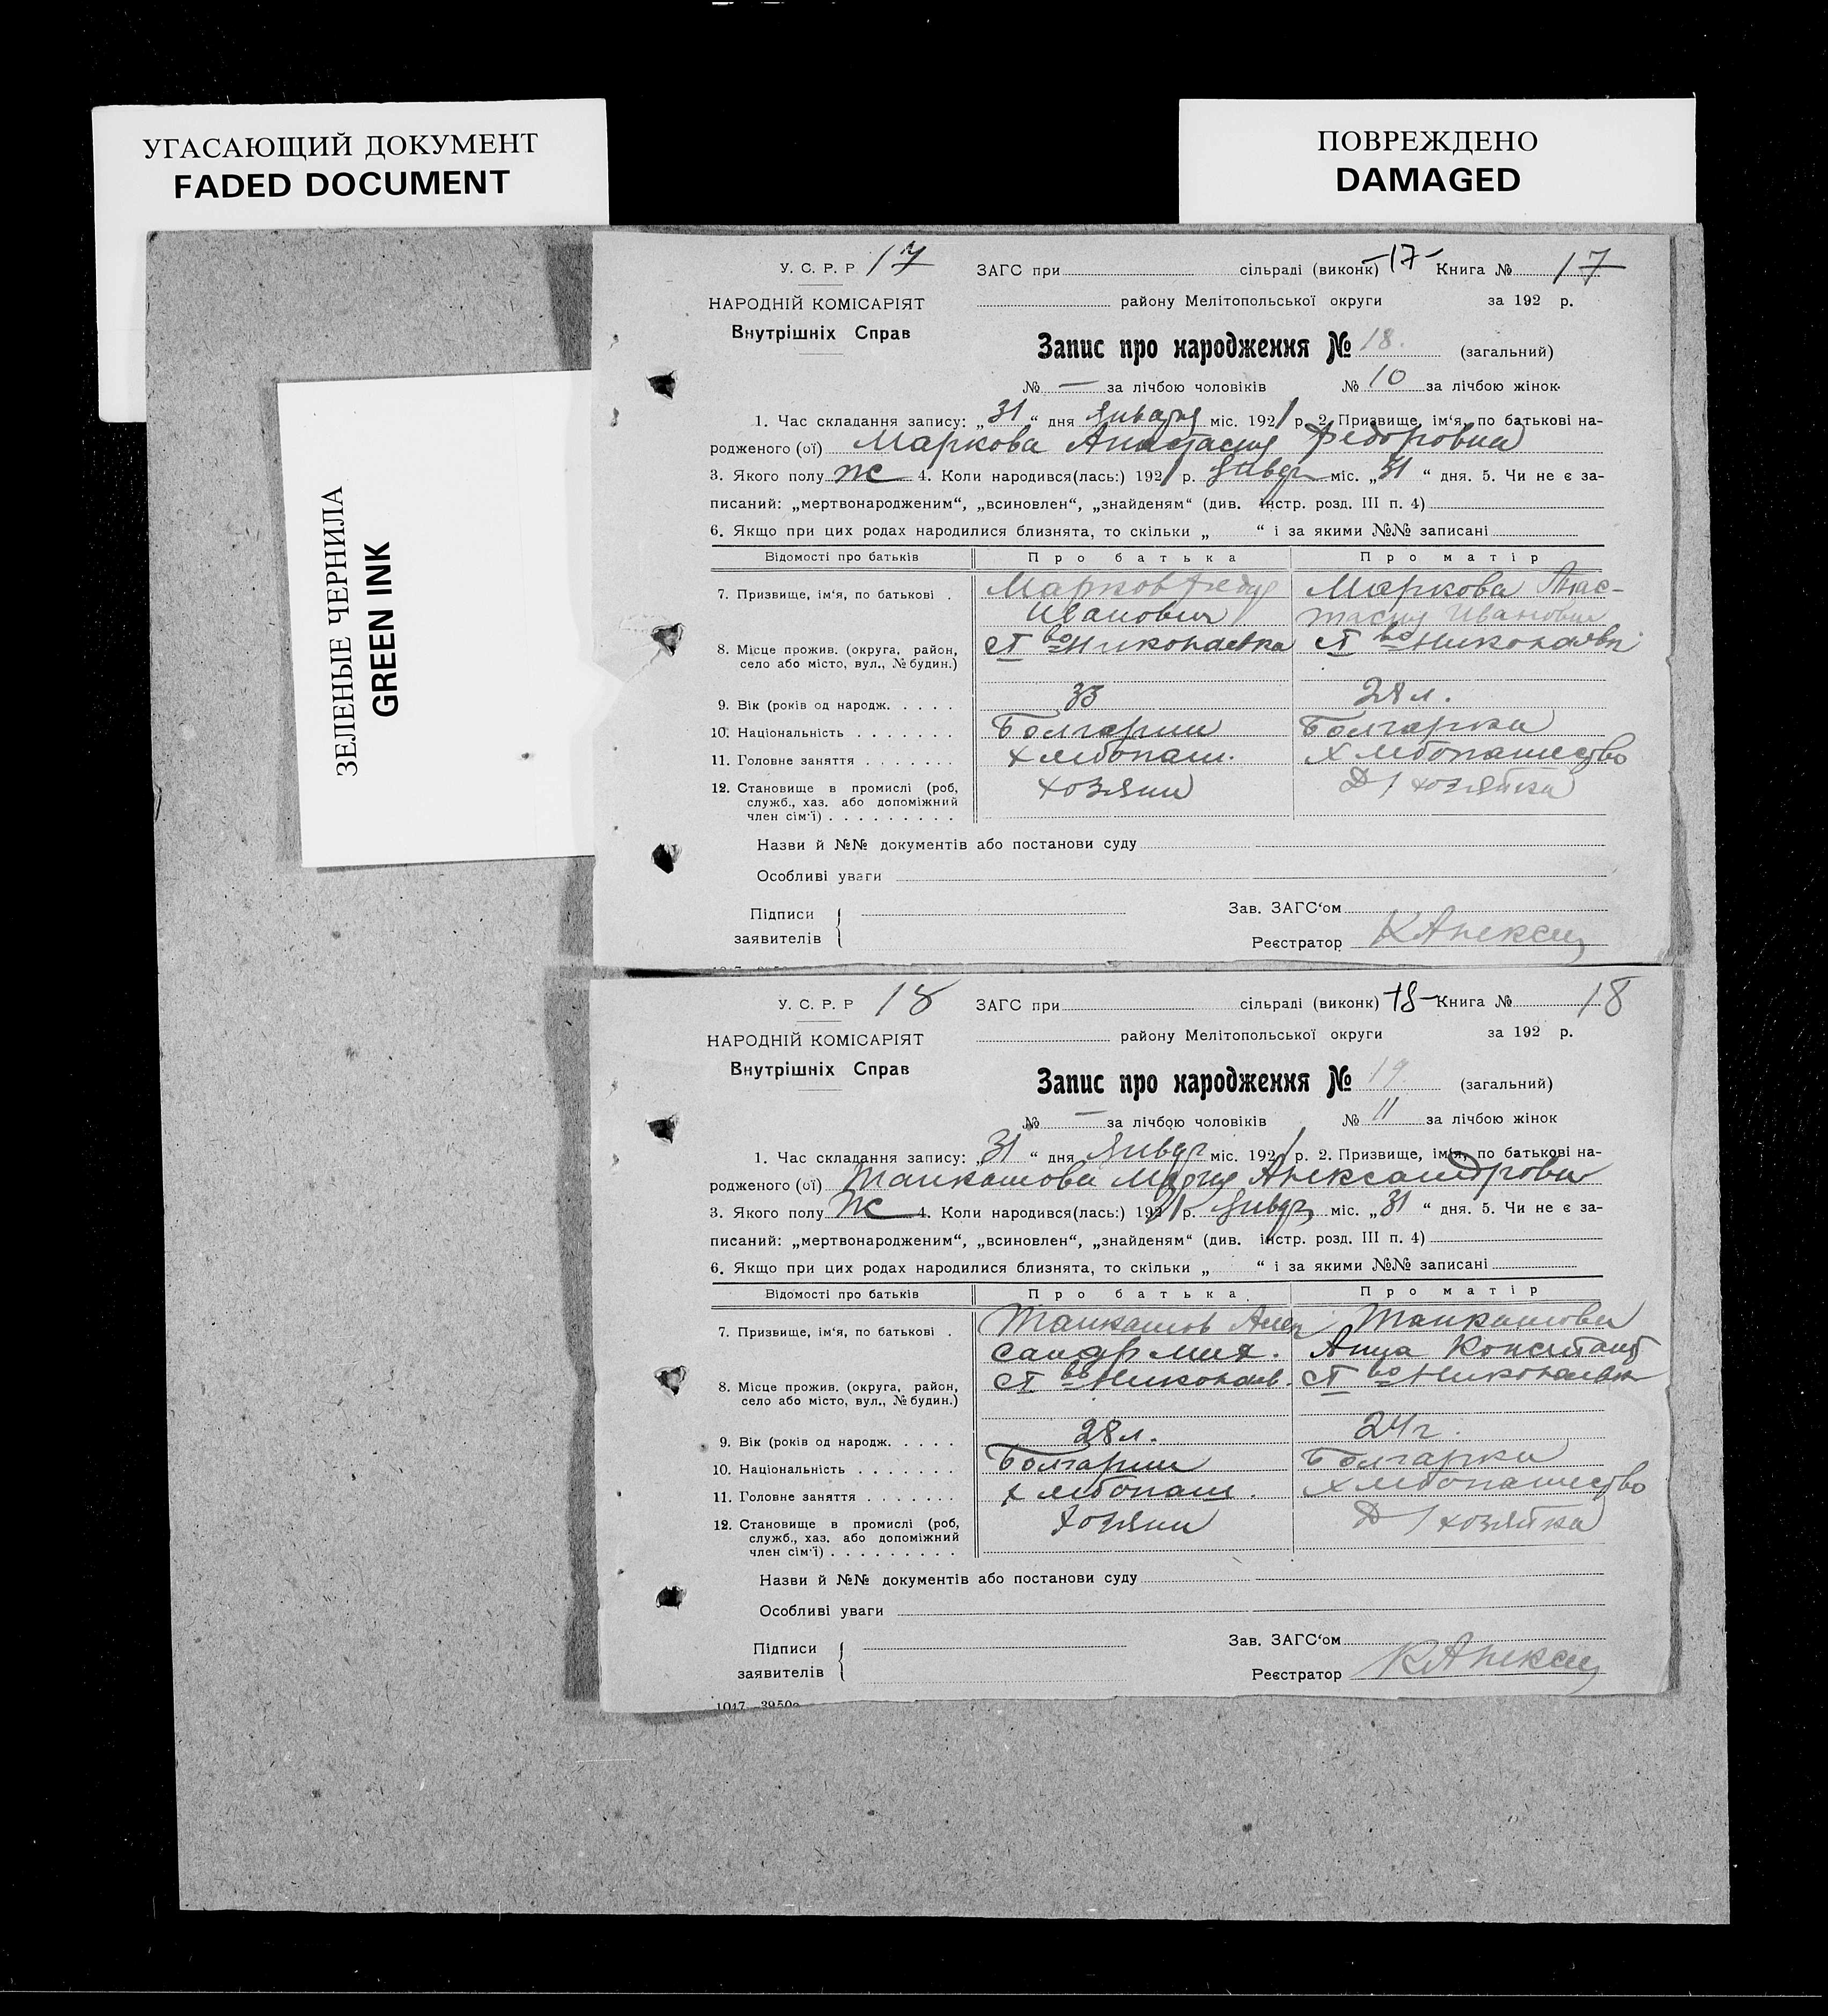 УГАСАЮЩИЙ ДОКУМЕНТ
FADED DOCUMENT
ПОВРЕЖДЕНО
DAMAGED
ЗЕЛЕНЫЕ ЧЕРНИЛА
GREEN INK
У. С. Р. Р 17 ЗАГС при сільраді (виконк) -17- Книга № 17
НАРОДНІЙ КОМІСАРІЯТ району Мелітопольської округи за 192 р.
Внутрішніх Справ
Запис про народження № 18. (загальний)
№ — за лічбою чоловіків № 10 за лічбою жінок.
1. Час складання запису: „31“ дня января міс. 1921 р. 2. Призвище, ім‘я, по батькові на-
родженого (ої) Маркова Анастасия Федоровна
3. Якого полу ж 4. Коли народився(лась:) 1921 р. январ міс. „31“ дня. 5. Чи не є за-
писаний: „мертвонародженим“, „всиновлен“, „знайденям“ (див. інстр. розд. III п. 4)
6. Якщо при цих родах народилися близнята, то скільки „ “ і за якими №№ записані
Відомості про батьків Про батька Про матір
7. Призвище, ім‘я, по батькові . Марков Федор Маркова Анас-
Иванович тасия Ивановна
8. Місце прожив. (округа, район, ст во Николаевка ст во Николаевк
село або місто, вул., № будин.)
9. Вік (років од народж. . . . . 33 28 л.
10. Національність . . . . . . . Болгарин Болгарка
11. Головне заняття . . . . . . . Хлебопаш. Хлебопашество
12. Становище в промислі (роб, хозяин Д/хозяйка
служб., хаз. або допоміжний
член сім‘ї) . . . . . . . . .
Назви й №№ документів або постанови суду
Особливі уваги
Підписи Зав. ЗАГС‘ом
заявителів Реєстратор
У. С. Р. Р 18 ЗАГС при сільраді (виконк) -18- Книга № 18
НАРОДНІЙ КОМІСАРІЯТ району Мелітопольської округи за 192 р.
Внутрішніх Справ
Запис про народження № 19. (загальний)
№ — за лічбою чоловіків № 11 за лічбою жінок
1. Час складання запису: „31“ дня январ міс. 1921 р. 2. Призвище, ім‘я, по батькові на-
родженого (ої) Мария Александровна
3. Якого полу ж 4. Коли народився(лась:) 1921 р. январ міс. „31“ дня. 5. Чи не є за-
писаний: „мертвонародженим“, „всиновлен“, „знайденям“ (див. інстр. розд. III п. 4)
6. Якщо при цих родах народилися близнята, то скільки „ “ і за якими №№ записані
Відомості про батьків Про батька Про матір
7. Призвище, ім‘я, по батькові .
сандр Мих. Анна Констант
8. Місце прожив. (округа, район, ст во Николаев. ст во Николаевк
село або місто, вул., № будин.)
9. Вік (років од народж. . . . . 28 л. 24 г.
10. Національність . . . . . . . Болгарин Болгарка
11. Головне заняття . . . . . . . Хлебопаш. Хлебопашество
12. Становище в промислі (роб, хозяин Д/хозяйка
служб., хаз. або допоміжний
член сім‘ї) . . . . . . . . .
Назви й №№ документів або постанови суду
Особливі уваги
Підписи Зав. ЗАГС‘ом
заявителів Реєстратор
1047—3950